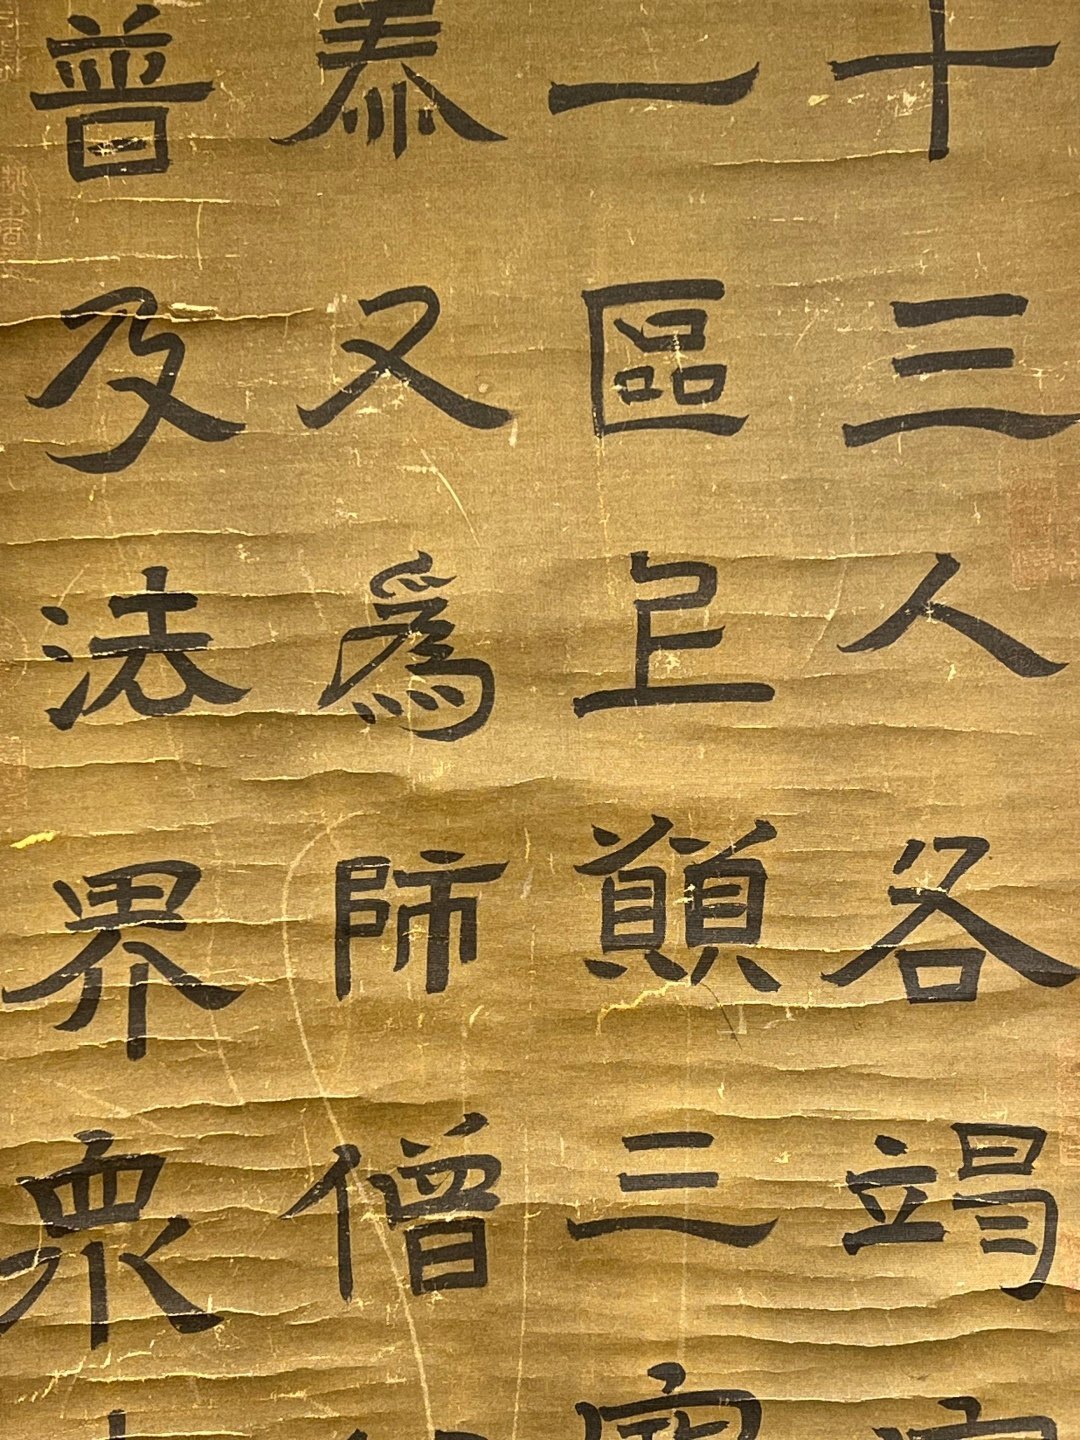 十三人各竭
一區上願三
泰又爲師僧
普及法界衆